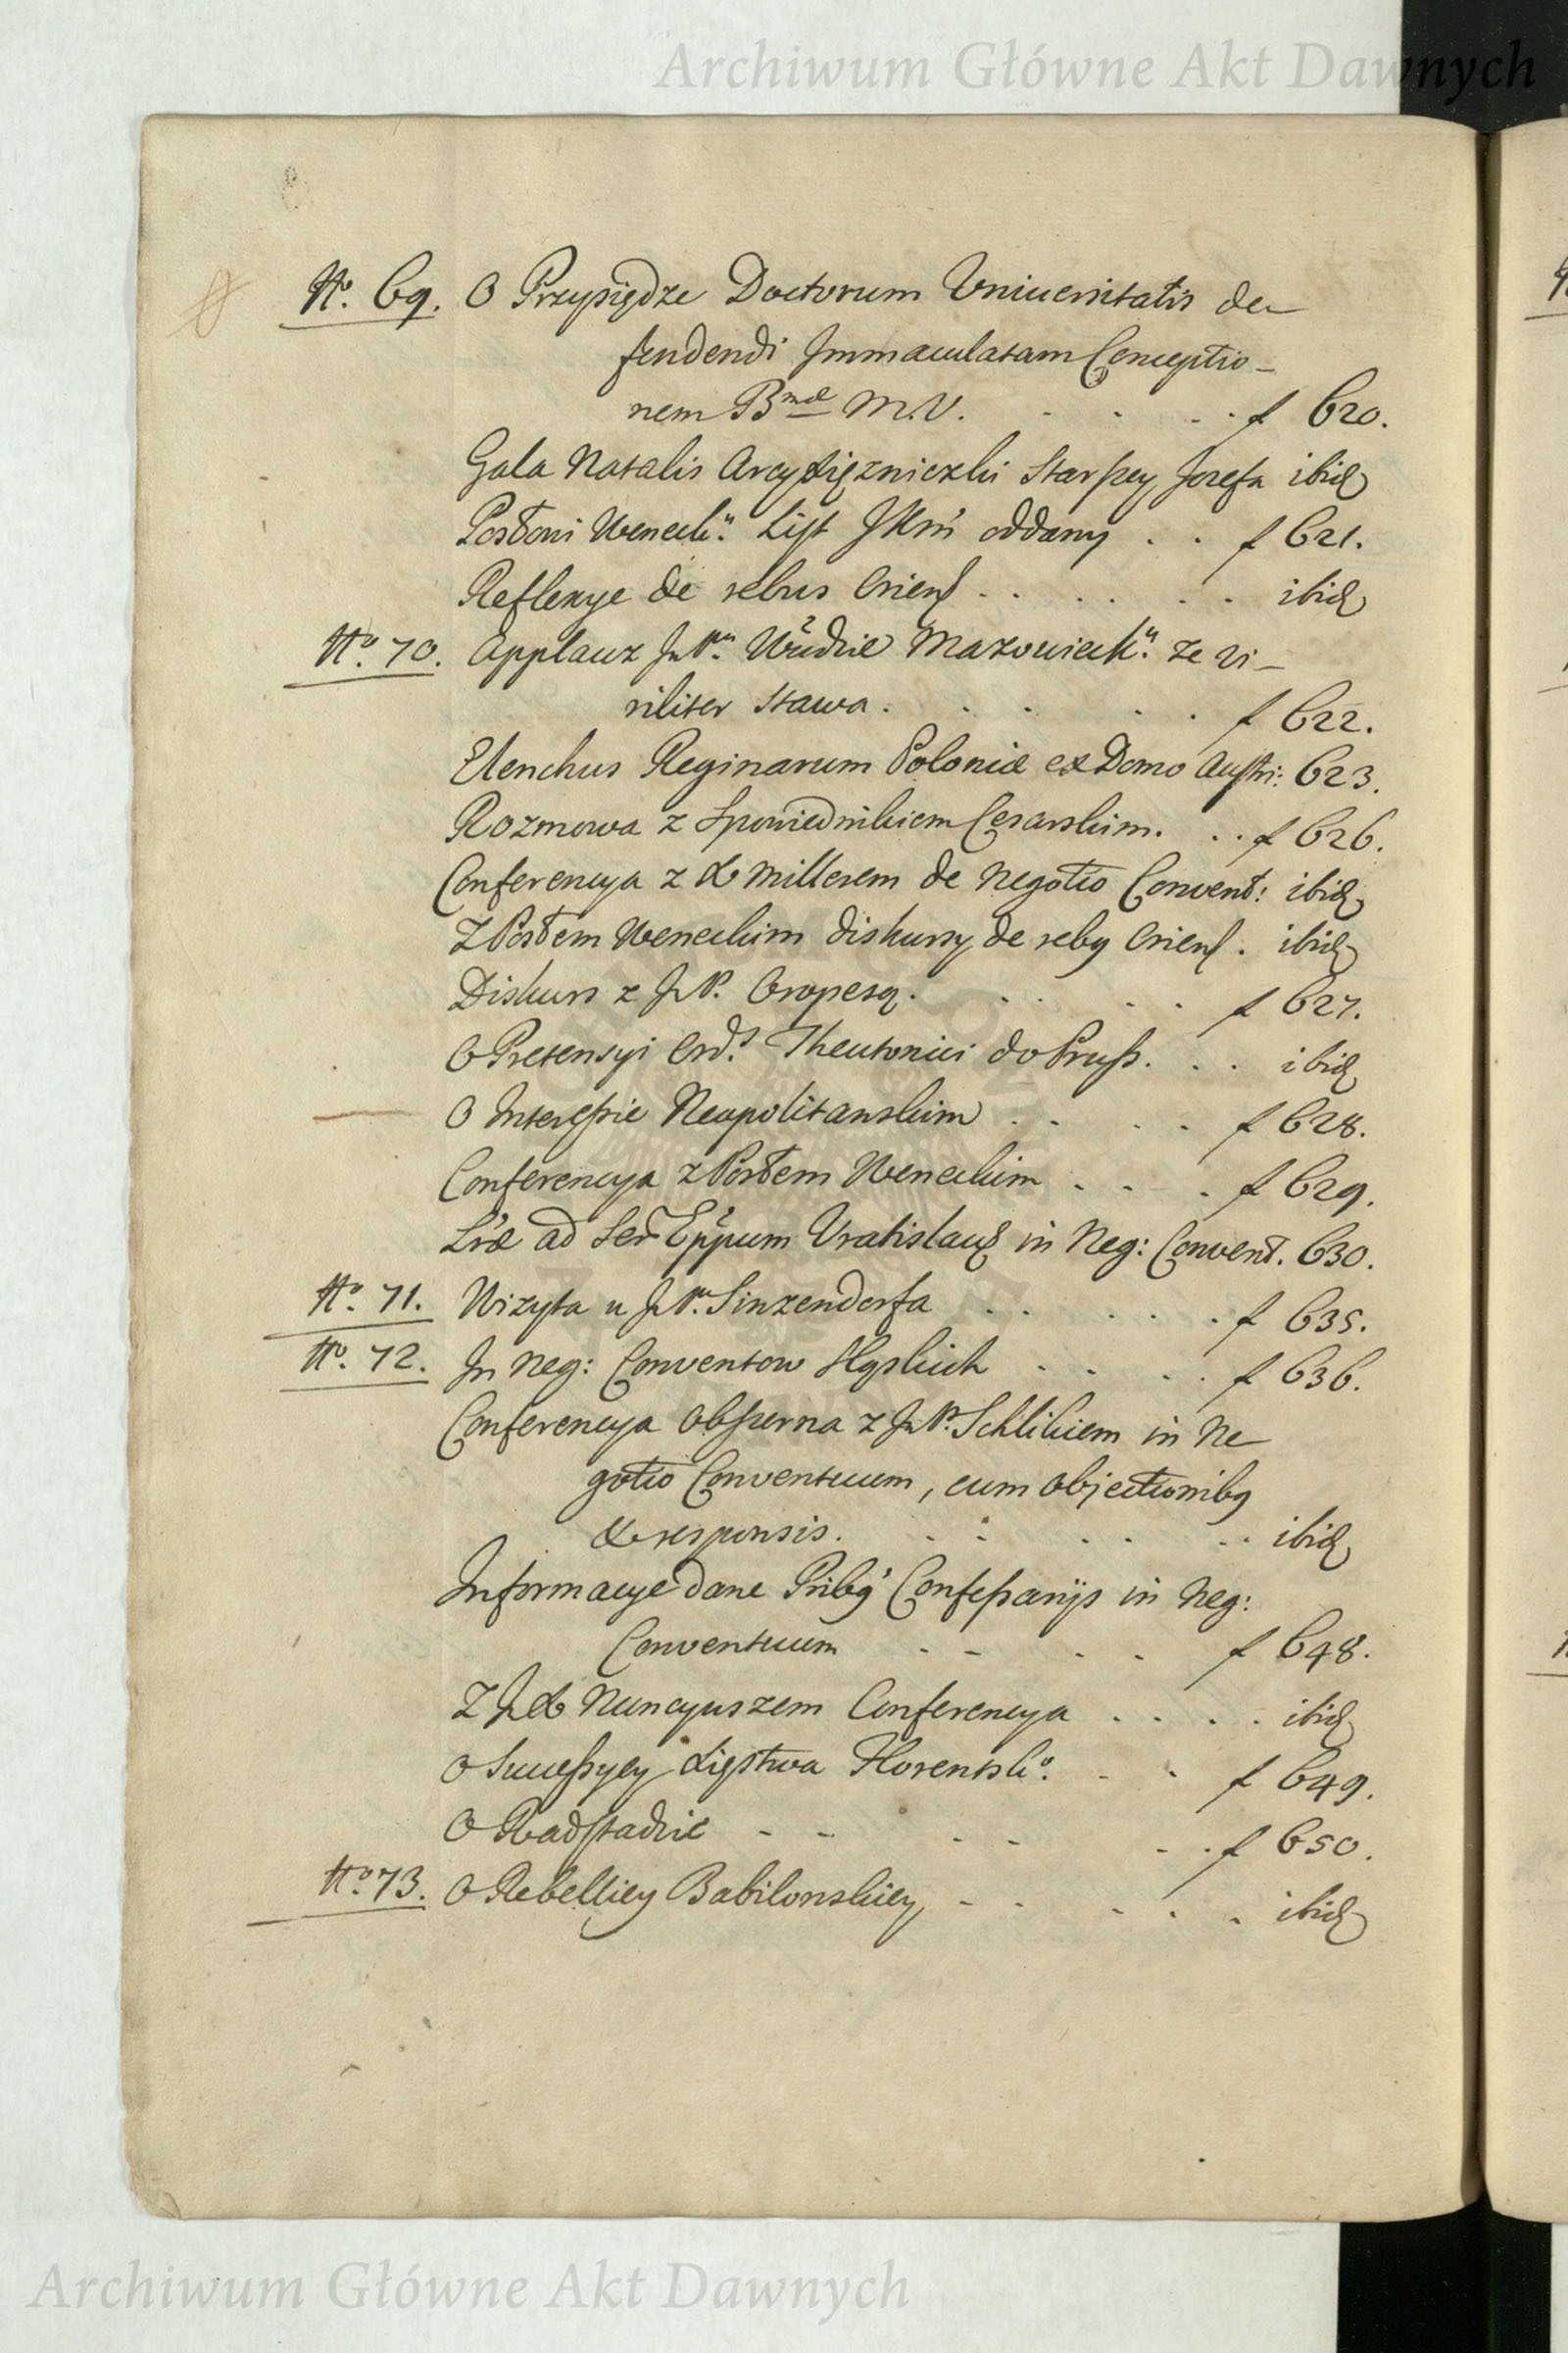 Archiwum Główne Akt Dawnych
No. 69. O Przysiędze Doctorum Uniuersitatis de-
fendendi Immaculatam Conceptio-
nem Bmæ M.V. . . . . f 620.
Gala Natalis Arcyxiężniczki Starszey Jozefa ibid
Posłowi Weneck. List JKM oddany . . f 621.
Reflexye de rebus Orient . . . . . . ibid
No. 70. Applauz Mazowieck. ze vi-
riliter stawa . . . . . f 622.
Elenchus Reginarum Poloniæ ex Domo Austri: 623.
Rozmowa z Spowiednikiem Cesarskim. . . f 626.
Conferencya z X Millerem de Negotio Convent: ibid
Z Posłem Weneckim diskursy de rebq Orient . ibid
Diskurs z JP. Oropesą . . . . . f 627.
O Pretensyi Ord. Theutonici do Pruss. . . ibid
O Interessie Neapolitanskim . . . . f 628.
Conferencya z Posłem Weneckim . . . f 629.
Lræ ad Ser Eppum Vratislau in Neg: Convent. 630.
No. 71. Wizyta u Sinzendorfa . . . . . f 635.
No. 72. In Neg: Conventow Sląskich . . . . f 636.
Conferencya obszerna z Schlikiem in Ne-
gotio Conventuum, cum objectionibq
& responsis. . . . . . . ibid
Informacye dane Confessarijs in Neg:
Conventuum . . . . f 648.
Z JX Nuncyuszem Conferencya . . . . ibid
O Successyey Xięstwa Florentsko. . . f 649.
O Radstadzie . . . . . . f 650.
No. 73. O Rebelliey Babilonskiey . . . . . ibid
Archiwum Główne Akt Dawnych